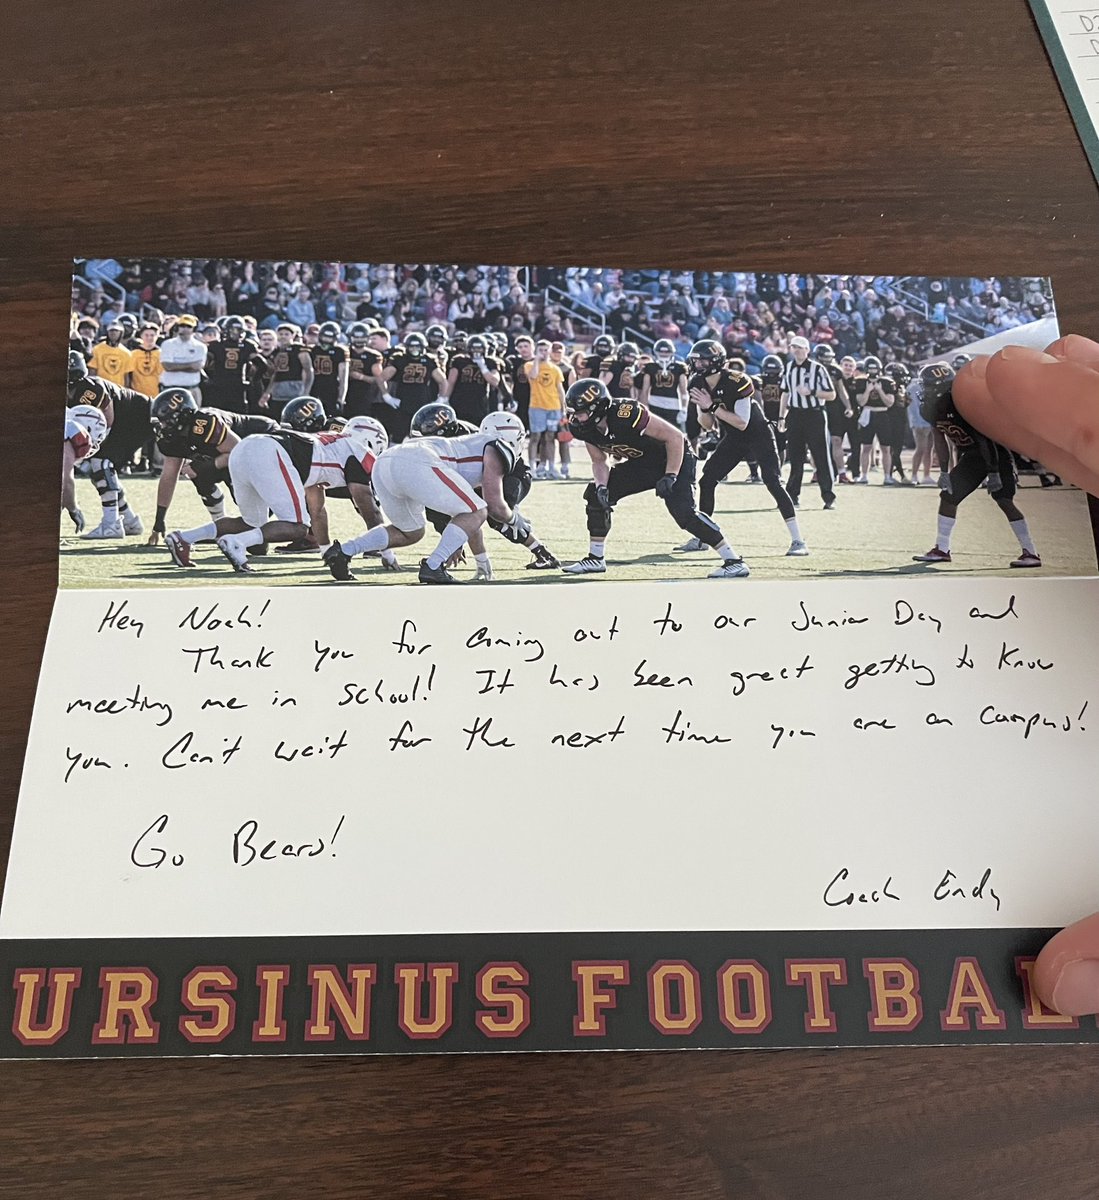 UC
64
UC
UC
UC
66
UC
27
Hey Noah!
Thank you for coming out to our Junior Day and
meeting me in school! It has been great getting to know
you. Can't wait for the next time you are on campus!
Go Bears!
Coach Endy
URSINUS FOOTBAL